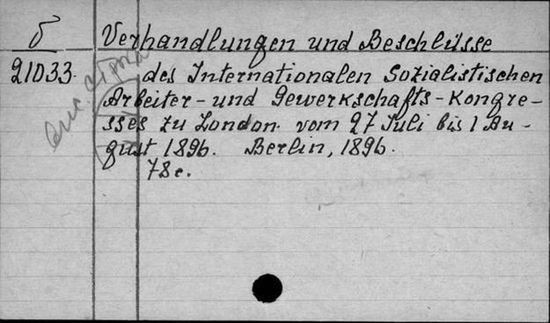 δ Verhandlungen und Beschlüsse
21033. des Internationalen Sozialistischen
Arbeiter - und Gewerkschafts - Kongre-
sses zu London vom 27 Juli bis 1 Au-
gust 1896. Berlin, 1896.
78c.